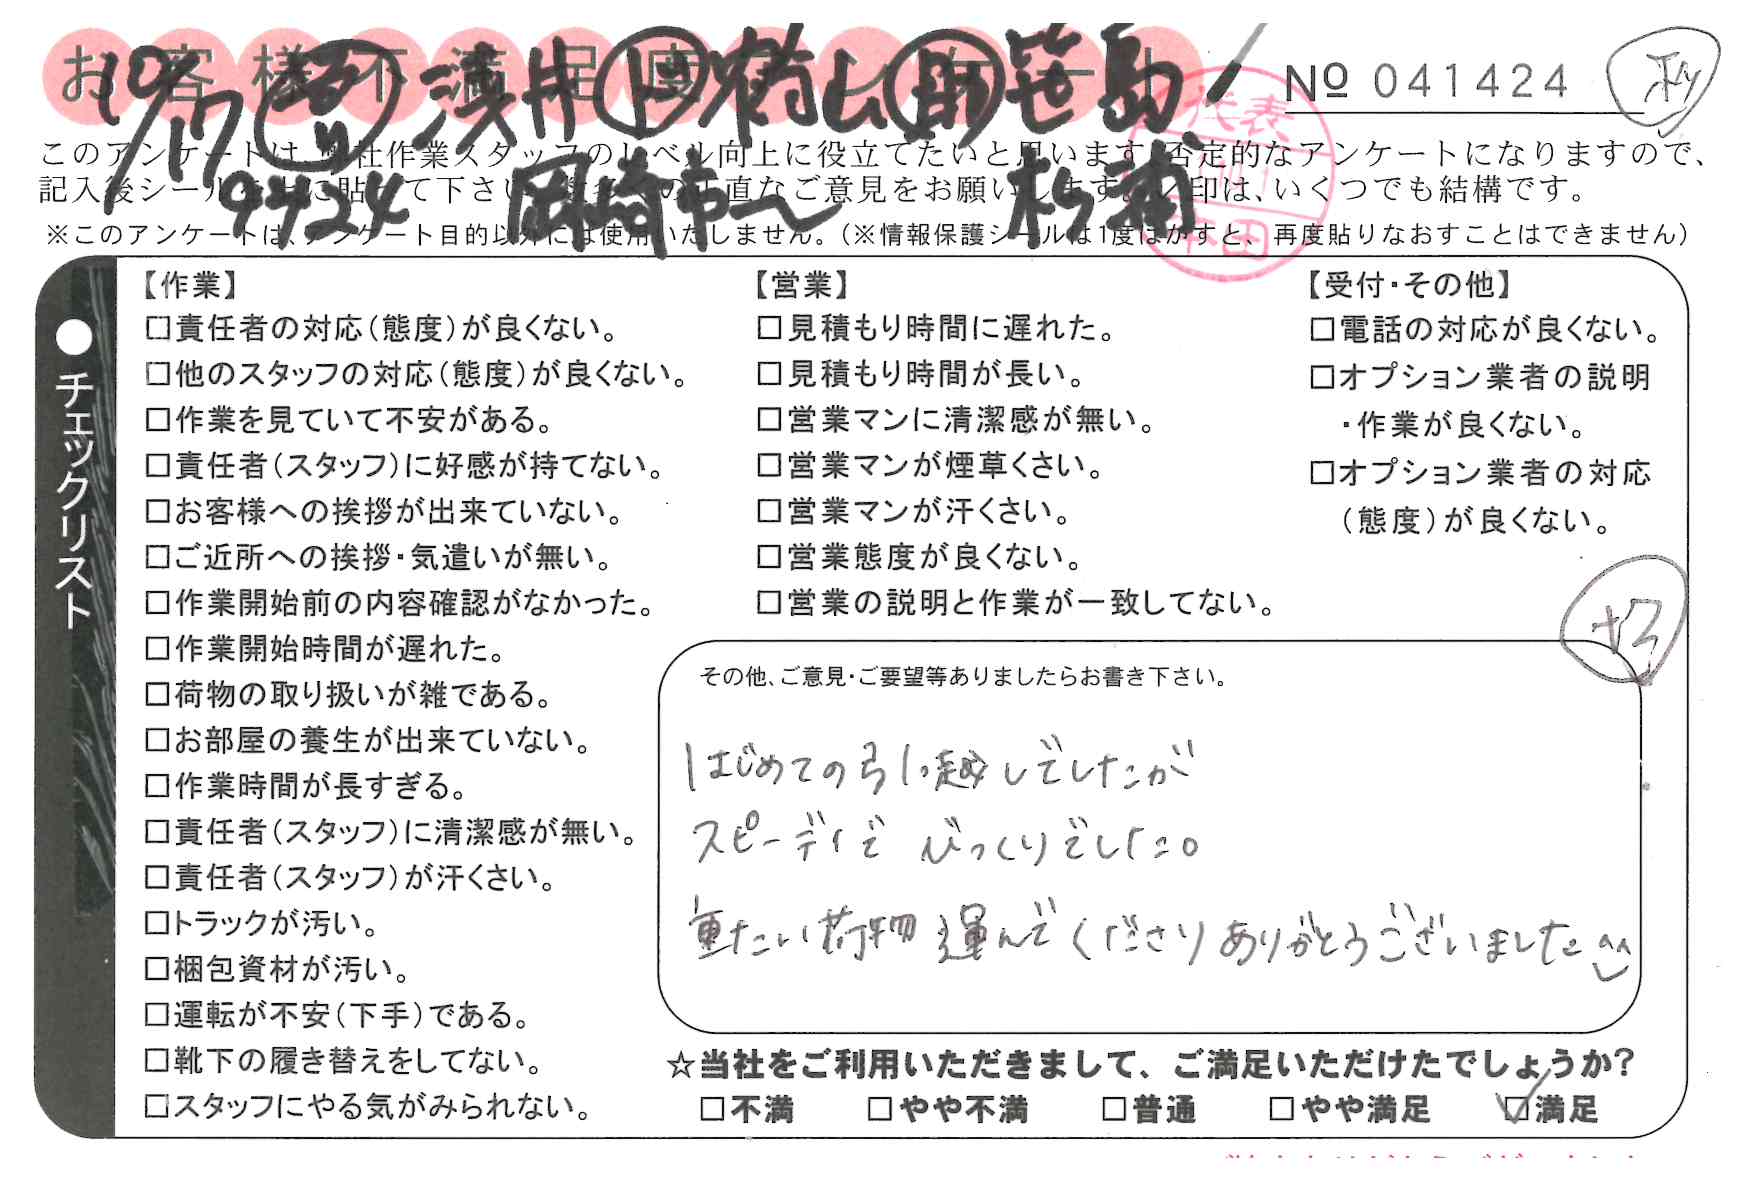 お客様不満足度アンケート
№ 041424
10/17 浅井 鶴山 助 笹島
9424 岡崎市へ 杉浦
このアンケートは、弊社作業スタッフのレベル向上に役立てたいと思います。否定的なアンケートになりますので、
記入後シールを上に貼って下さい。数多くの正直なご意見をお願いします。レ印は、いくつでも結構です。
※このアンケートは、アンケート目的以外には使用いたしません。(※情報保護シールは1度はがすと、再度貼りなおすことはできません)
代表
●チェックリスト
【作業】
□責任者の対応(態度)が良くない。
□他のスタッフの対応(態度)が良くない。
□作業を見ていて不安がある。
□責任者(スタッフ)に好感が持てない。
□お客様への挨拶が出来ていない。
□ご近所への挨拶・気遣いが無い。
□作業開始前の内容確認がなかった。
□作業開始時間が遅れた。
□荷物の取り扱いが雑である。
□お部屋の養生が出来ていない。
□作業時間が長すぎる。
□責任者(スタッフ)に清潔感が無い。
□責任者(スタッフ)が汗くさい。
□トラックが汚い。
□梱包資材が汚い。
□運転が不安(下手)である。
□靴下の履き替えをしてない。
□スタッフにやる気がみられない。
【営業】
□見積もり時間に遅れた。
□見積もり時間が長い。
□営業マンに清潔感が無い。
□営業マンが煙草くさい。
□営業マンが汗くさい。
□営業態度が良くない。
□営業の説明と作業が一致してない。
【受付・その他】
□電話の対応が良くない。
□オプション業者の説明
・作業が良くない。
□オプション業者の対応
(態度)が良くない。
+3
その他、ご意見・ご要望等ありましたらお書き下さい。
はじめての引っ越しでしたが
スピーディで びっくりでした。
重たい荷物 運んでくださり ありがとうございました^^
☆当社をご利用いただきまして、ご満足いただけたでしょうか?
□不満 □やや不満 □普通 □やや満足 ☑満足